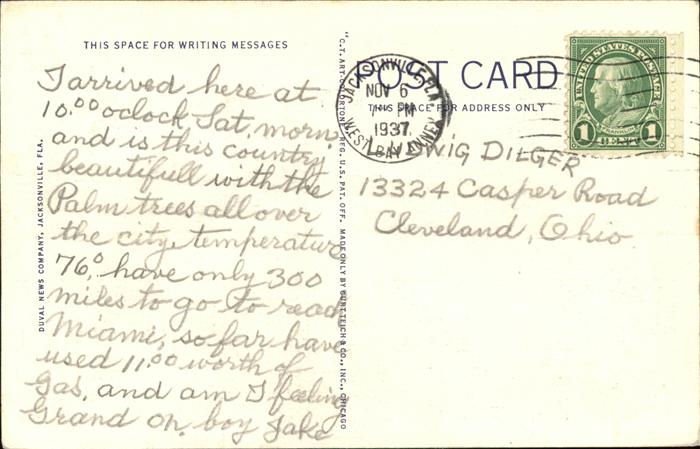 THIS SPACE FOR WRITING MESSAGES
I arrived here at
10.00 oclock Sat, morn.
and is this country
beautifull with the
Palm trees all over
the city, temperature
76°, have only 300
miles to go to reach
Miami, so far have
used 11.00 worth of
Gas, and am I feeling
Grand oh, boy Jake
DUVAL NEWS COMPANY, JACKSONVILLE, FLA.
"C.T. ART-COLORTONE" REG. U.S. PAT. OFF. MADE ONLY BY CURT TEICH & CO., INC., CHICAGO
POST CARD
THIS SPACE FOR ADDRESS ONLY
JACKSONVILLE, FLA.
NOV 6
7 PM
1937
WEST BAY ANNEX
UNITED STATES POSTAGE
FRANKLIN
1 CENT 1
LUDWIG DILGER
13324 Casper Road
Cleveland, Ohio